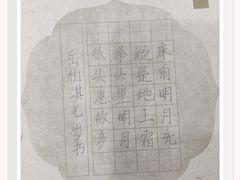 床前明月光
疑是地上霜
举头望明月
低头思故乡
岳柏淇七岁书